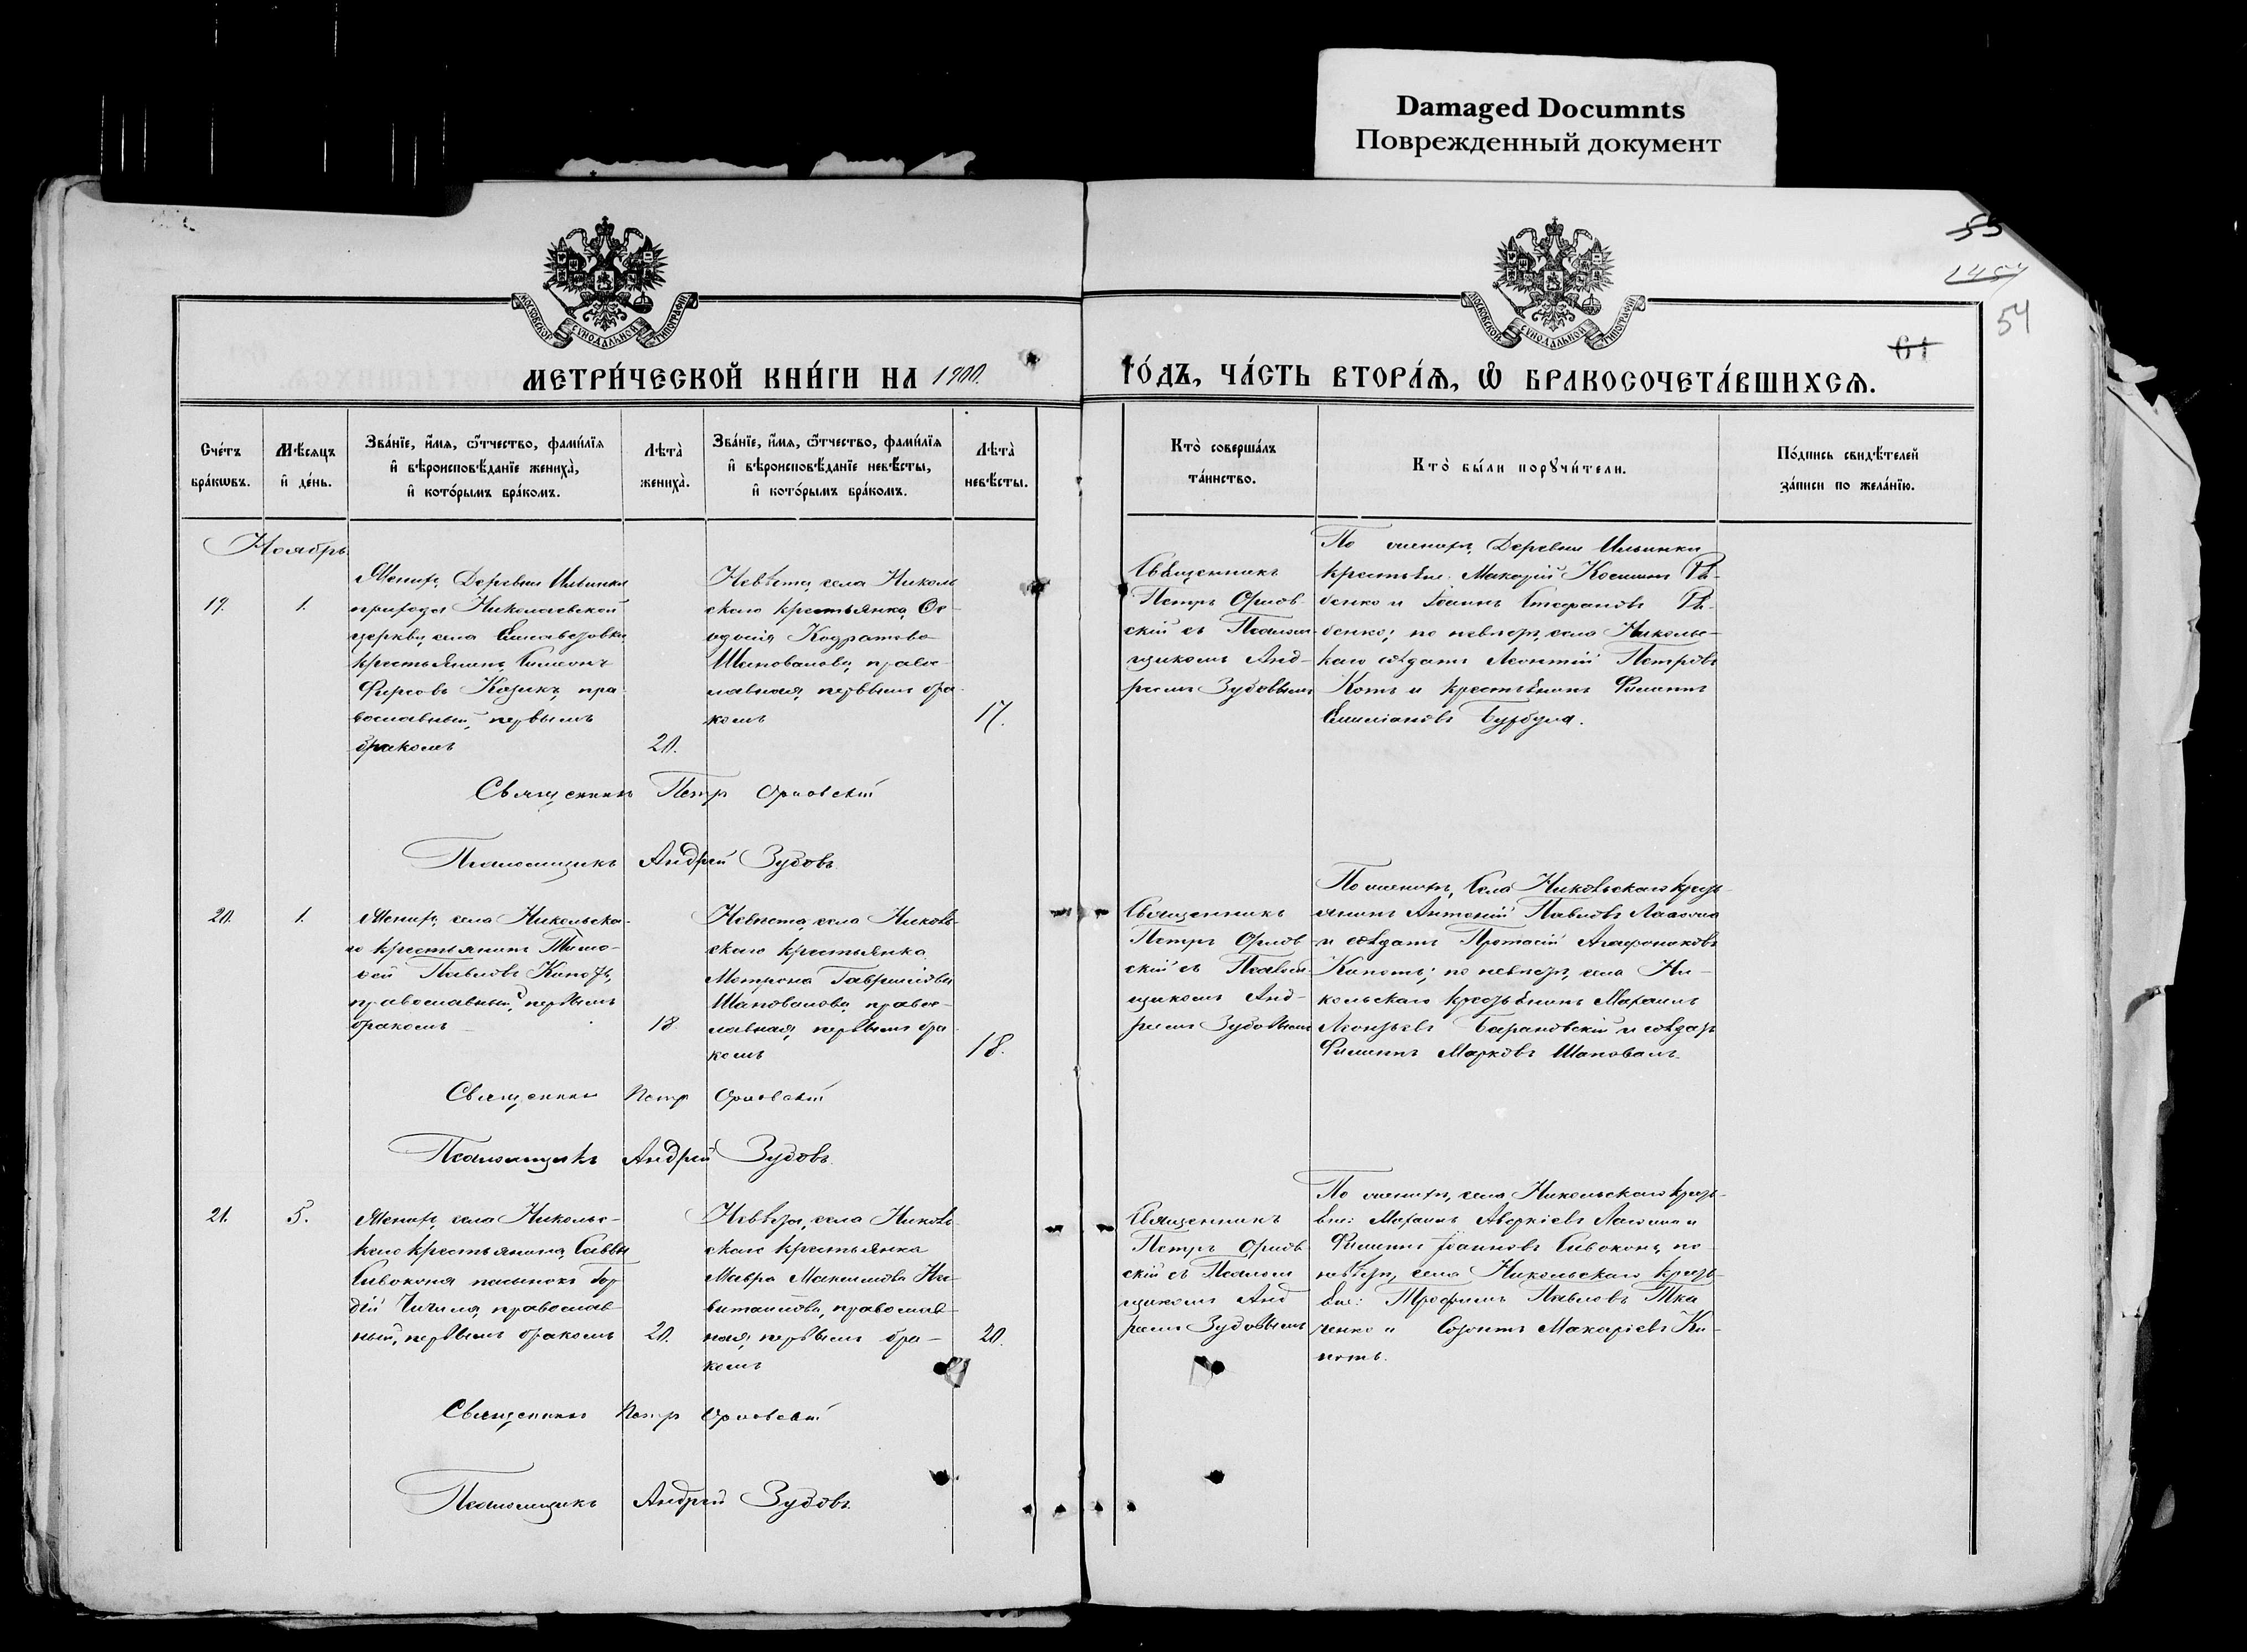 Damaged Documnts
Поврежденный документ
55
1454
54
61
МОСКОВСКОЙ СѴНОДАЛЬНОЙ ТИПОГРАФІИ
МОСКОВСКОЙ СѴНОДАЛЬНОЙ ТИПОГРАФІИ
МЕТРИ́ЧЕСКОЙ КНИ́ГИ НА 1900.
ГО́ДЪ, ЧА́СТЬ ВТОРА́Ѧ, Ѽ БРАКОСОЧЕТА́ВШИХСѦ.
Сче́тъ
бра́кѡвъ.
Мѣ́сяцъ
и҆ де́нь.
Зва́нїе, и҆́мѧ, ѻ҆́тчество, фами́лїѧ
и҆ вѣроисповѣ́данїе жениха̀,
и҆ кото́рымъ бра́комъ.
Лѣта̀
жениха̀.
Зва́нїе, и҆́мѧ, ѻ҆́тчество, фами́лїѧ
и҆ вѣроисповѣ́данїе невѣ́сты,
и҆ кото́рымъ бра́комъ.
Лѣта̀
невѣ́сты.
Кто̀ соверша́лъ
та́инство.
Кто̀ бы́ли порꙋчи́тели.
По́дпись свидѣ́телей
за́писи по жела́нїю.
Ноябрь
19.
1.
Женихъ, Деревни Ильинки
прихода Николаевской
церкви, села Елисаветовки
крестьянинъ Симеонъ
Фирсовъ Козикъ, пра
вославный, первымъ
бракомъ
20.
Невѣста, села Николь
скаго крестьянка, Ѳе-
одосія Кодратова
Шаповалова, право-
славная, первымъ бра
комъ
17.
Священникъ
Петръ Орлов
скій съ Псалом
щикомъ Анд-
реемъ Зубовымъ
По женихѣ, Деревни Ильинки
крестьяне: Макарій Косминъ Ря-
бенко и Іоаннъ Стефановъ Ря-
бенко; по невѣстѣ, села Николь-
каго солдатъ Леонтій Петровъ
Котъ и крестьянинъ Филиппъ
Емиліановъ Бурбула.
Священникъ Петр Орловскій
Псаломщикъ Андрей Зубовъ
20.
1.
Женихъ, села Никольска-
го крестьянинъ Тимо-
ѳей Павловъ Кипоть,
православный, первымъ
бракомъ
18
Невѣста, села Николь
скаго крестьянка
Матрона Гавриилова
Шаповалова, право-
славная, первымъ бра
комъ
18.
Священникъ
Петръ Орлов
скій съ Псалом
щикомъ Анд-
реемъ Зубовымъ
По женихѣ, Села Никольскаго крест
янинъ Антоній Павловъ
и солдатъ Протасій Агафониковъ
Кипоть; по невѣстѣ, села Ни-
кольскаго крестьянинъ Михаилъ
Леонтьевъ Барановскій и солдатъ
Филиппъ Марковъ Шаповалъ.
Священникъ Петр Орловскій
Псаломщикъ Андрей Зубовъ.
21.
5.
Женихъ, села Николь-
каго крестьянина, Саввы
Сивоконя пасынокъ Гор
дій Чичиля, православ-
ный, первымъ бракомъ
20.
Невѣста, села Николь
скаго крестьянка
Мавра Максимова
православ-
ная, первымъ бра-
комъ
20.
Священникъ
Петръ Орлов
скій съ Псалом
щикомъ Анд
реемъ Зубовымъ
По женихѣ, села Никольскаго крест-
яне: Михаилъ Аверкіевъ и
Филиппъ Іоанновъ Сивоконь, по
невѣстѣ, села Никольскаго крест-
яне: Трофимъ Павловъ Тка
ченко и Созонтъ Макаріевъ Ки-
поть.
Священникъ Петр Орловскій
Псаломщикъ Андрей Зубовъ.